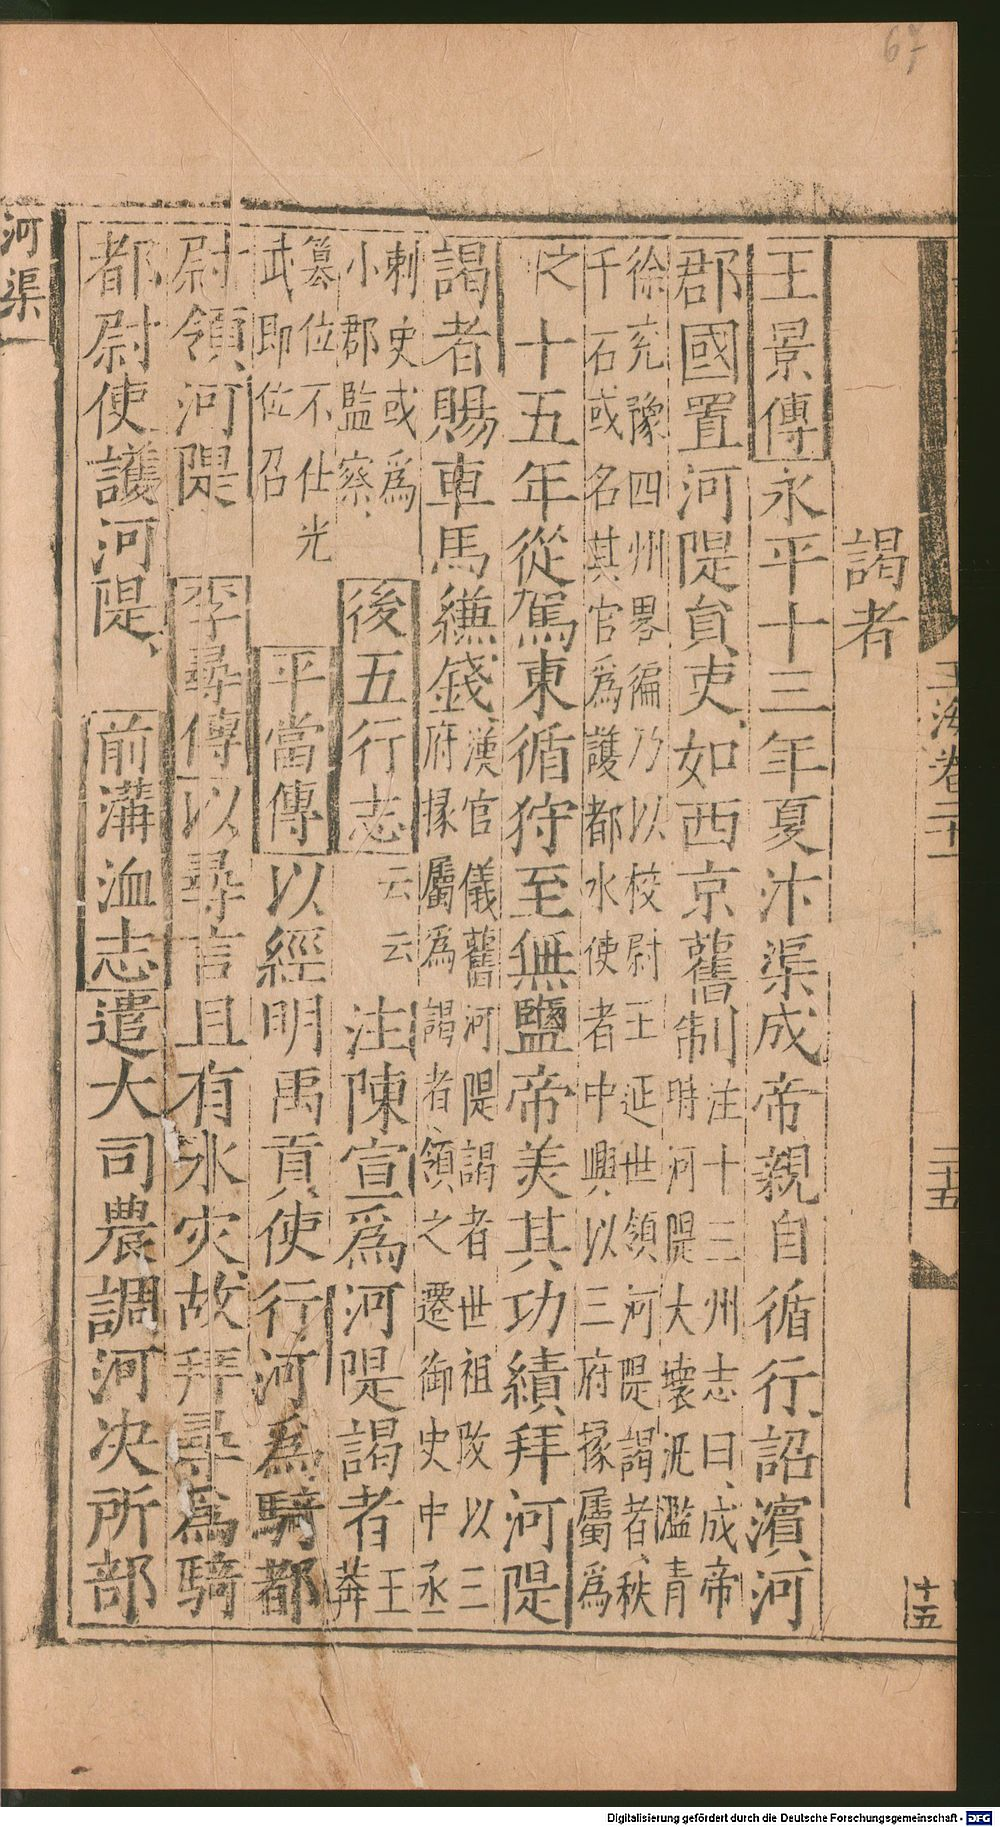 67
玉海卷二十一
二十五
十五
謁者
王景傳永平十三年夏汴渠成帝親自循行詔濱河
郡國置河隄貟吏如西京舊制注十三州志曰成帝
時河隄大壞汎濫青
徐兖豫四州畧徧乃以校尉王延世領河隄謁者秩
千石或名其官爲護都水使者中興以三府掾屬爲
之十五年從駕東循狩至無鹽帝美其功績拜河隄
謁者賜車馬縑錢漢官儀舊河隄謁者世祖改以三
府掾屬爲謁者領之遷御史中丞
刺史或爲
小郡監察
後五行志云云注陳宣爲河隄謁者王
莽
篡位不仕光
武即位召
平當傳以經明禹貢使行河爲騎都
尉領河隄李尋傳以尋言且有水灾故拜尋爲騎
都尉使護河隄前溝洫志遣大司農調河决所部
河渠一
Digitalisierung gefördert durch die Deutsche Forschungsgemeinschaft - DFG